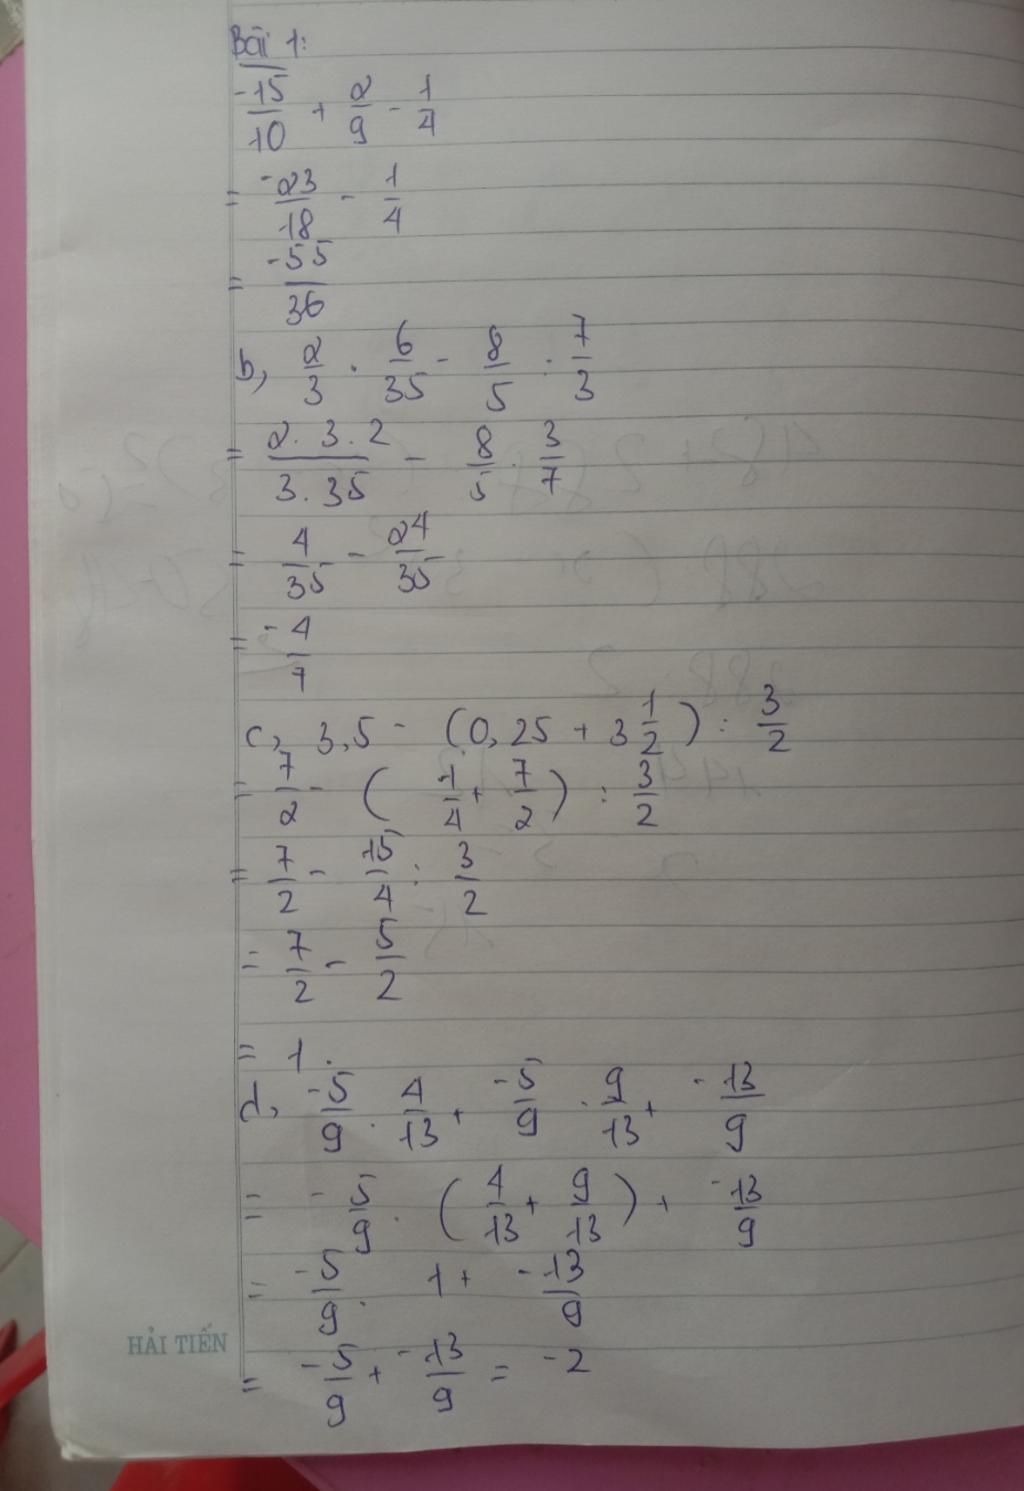 Bài 1:
-15/10 + 2/9 - 1/4
= -23/18 - 1/4
= -55/36
b, 2/3 . 6/35 - 8/5 : 7/3
= 2.3.2/3.35 - 8/5 . 3/7
= 4/35 - 24/35
= -4/7
c, 3,5 - (0,25 + 3 1/2) : 3/2
= 7/2 - (1/4 + 7/2) : 3/2
= 7/2 - 15/4 : 3/2
= 7/2 - 5/2
= 1.
d, -5/9 . 4/13 + -5/9 . 9/13 + -13/9
= -5/9 . (4/13 + 9/13) + -13/9
= -5/9 . 1 + -13/9
= -5/9 + -13/9 = -2
HẢI TIẾN